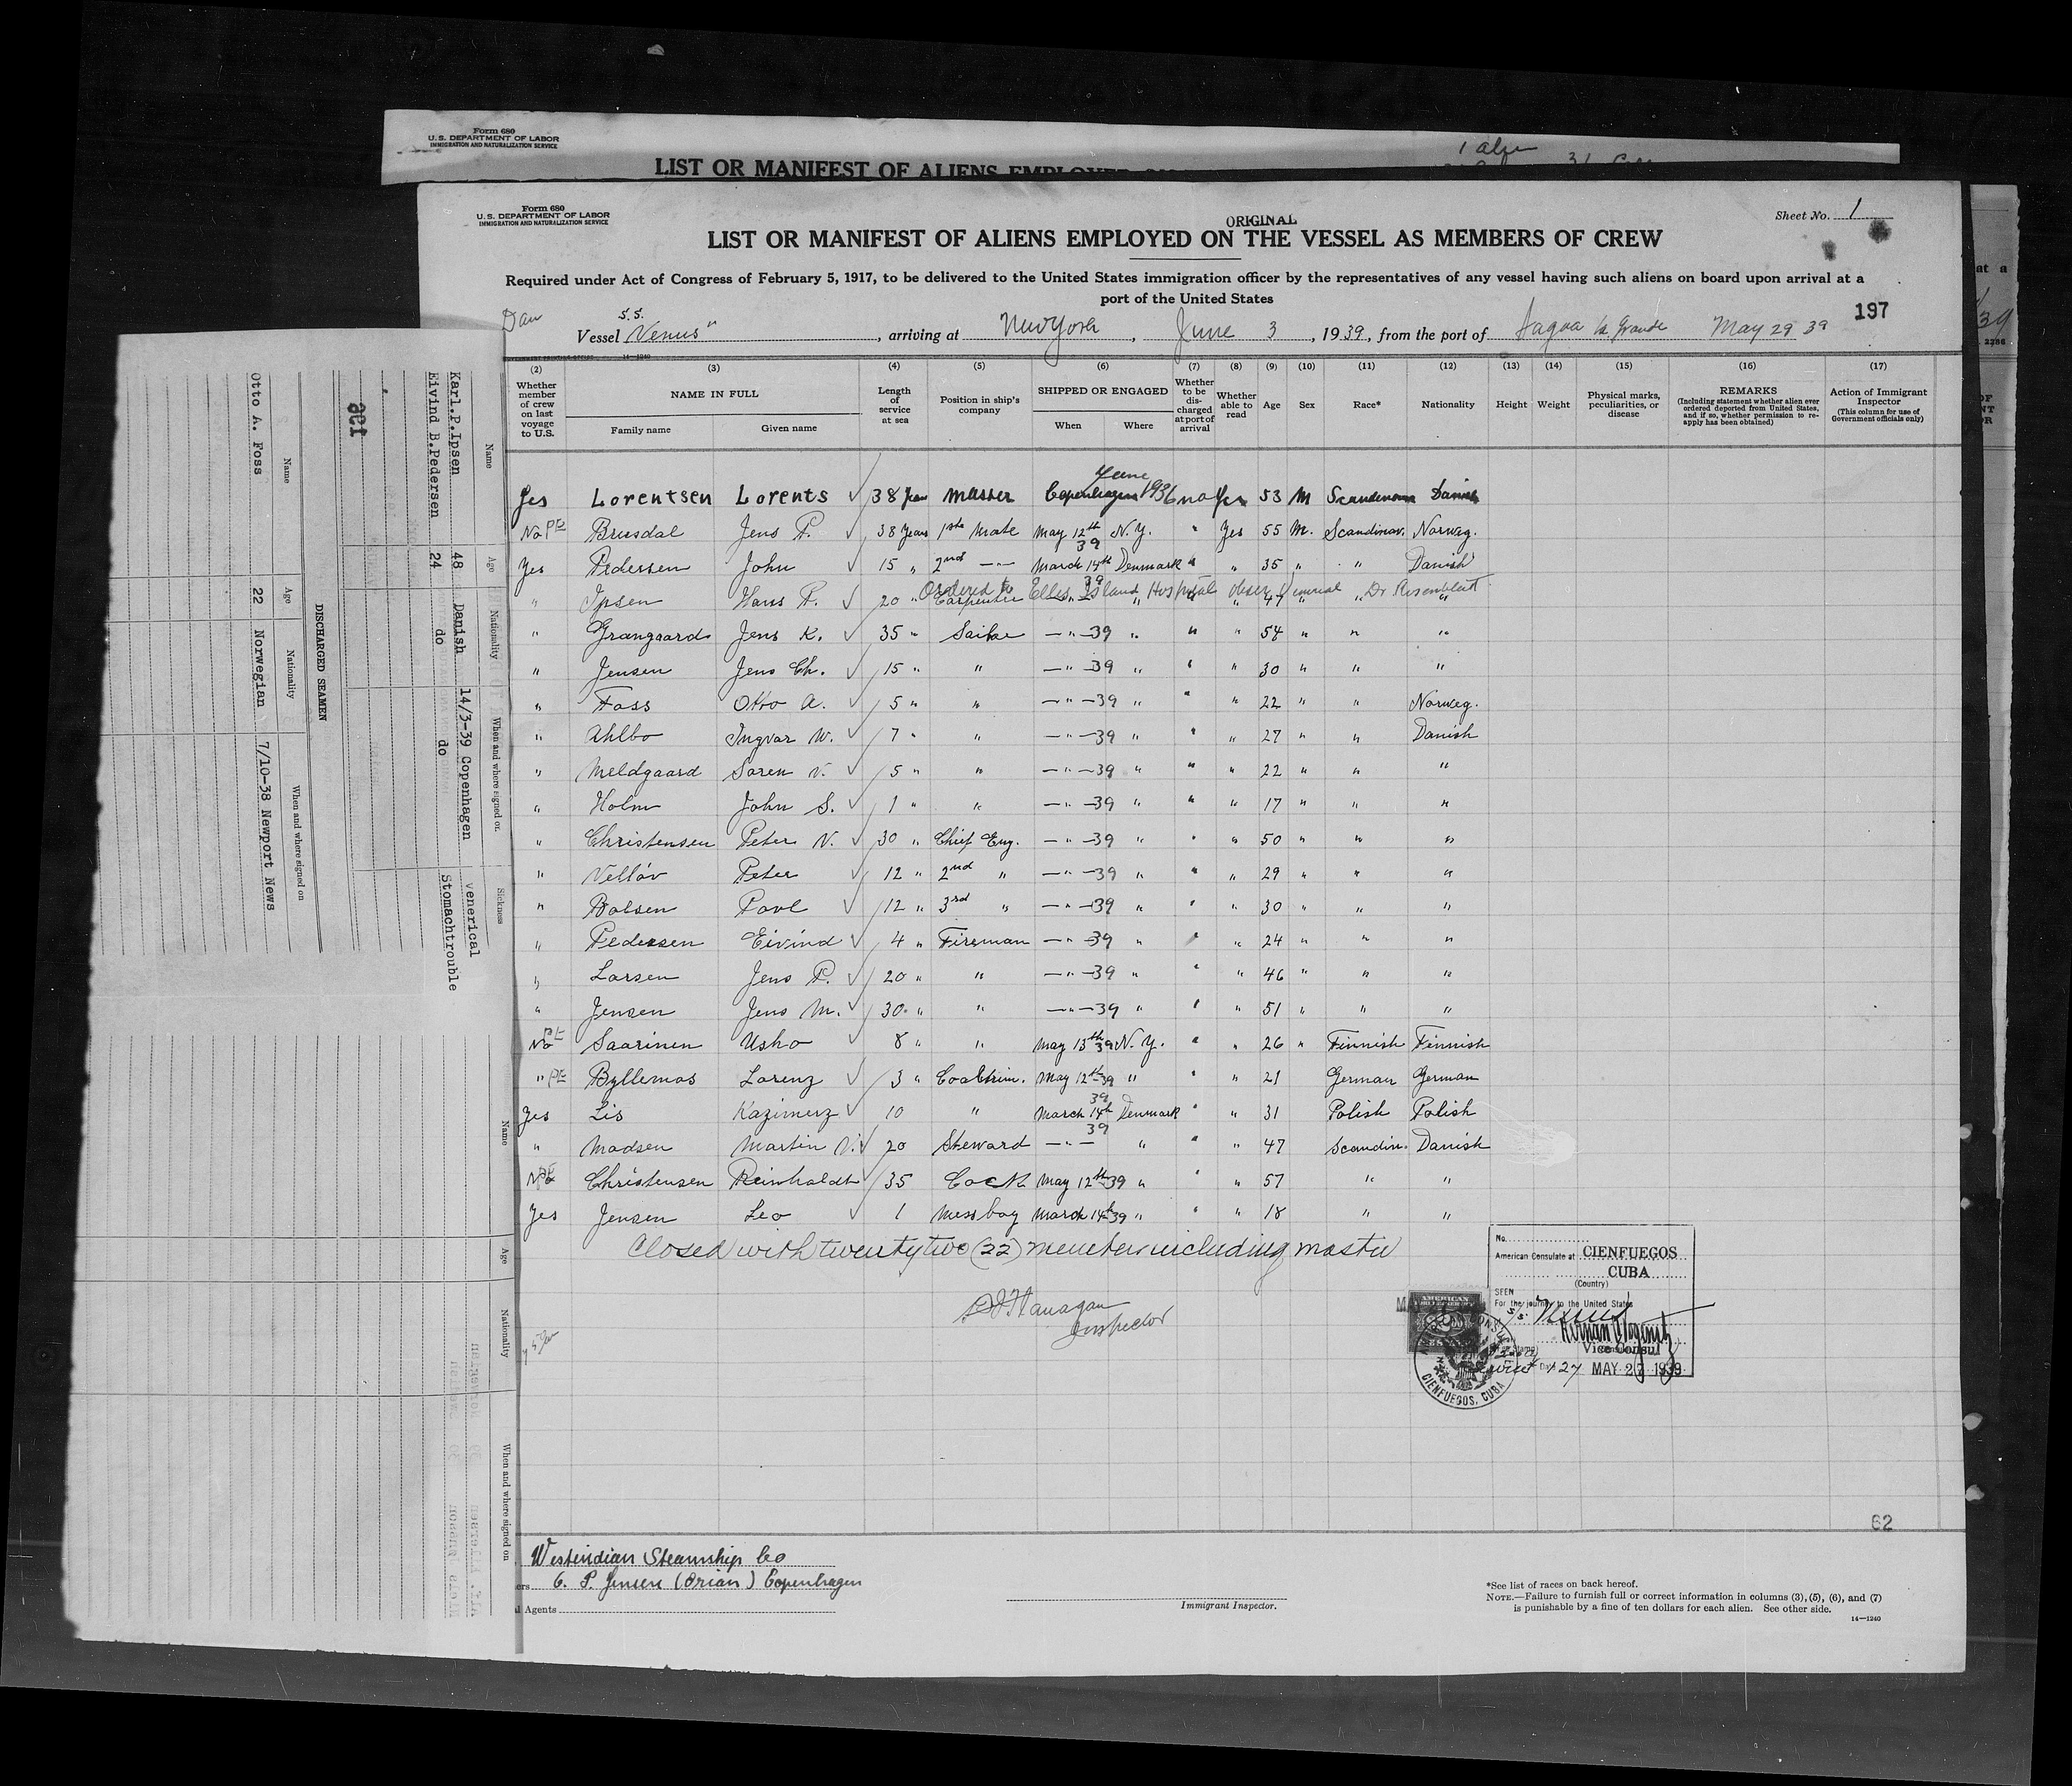 Form 680
U. S. DEPARTMENT OF LABOR
IMMIGRATION AND NATURALIZATION SERVICE
1 alien
LIST OR MANIFEST OF ALIENS EMPLOYED
Form 680
U. S. DEPARTMENT OF LABOR
IMMIGRATION AND NATURALIZATION SERVICE
ORIGINAL
Sheet No. 1
LIST OR MANIFEST OF ALIENS EMPLOYED ON THE VESSEL AS MEMBERS OF CREW
Required under Act of Congress of February 5, 1917, to be delivered to the United States immigration officer by the representatives of any vessel having such aliens on board upon arrival at a
port of the United States
197
Dan Vessel S.S. Venus", arriving at New York, June 3, 1939, from the port of Sagua la Grande May 29 39
(2) (3) (4) (5) (6) (7) (8) (9) (10) (11) (12) (13) (14) (15) (16) (17)
Whether member of crew on last voyage to U.S. NAME IN FULL Family name Given name Length of service at sea Position in ship's company SHIPPED OR ENGAGED When Where Whether to be discharged at port of arrival Whether able to read Age Sex Race* Nationality Height Weight Physical marks, peculiarities, or disease REMARKS (Including statement whether alien ever ordered deported from United States, and if so, whether permission to reapply has been obtained) Action of Immigrant Inspector (This column for use of Government officials only)
Yes Lorentsen Lorents ✓ 38 Years Master Copenhagen June 1936 no Yes 53 M Scandinavn Danish
No PE Brusdal Jens P. ✓ 38 Years 1ste Mate May 12th 39 N.Y. " Yes 55 M. Scandinav. Norweg.
Yes Pedersen John ✓ 15 " 2nd —"— March 14th 39 Denmark " " 35 " " Danish
Ordered to Ellis Island Hospital
" Ipsen Hans P. ✓ 20 " Carpenter —"— " " " 47 " " "
" Grangaard Jens K. ✓ 35 " Sailor —"—39 " " " 54 " " "
" Jensen Jens Ch. ✓ 15 " " —"—39 " " " 30 " " "
" Foss Otto A. ✓ 5 " " —"—39 " " " 22 " " Norweg.
" Ahlbo Ingvar W. ✓ 7 " " —"—39 " " " 27 " " Danish
" Meldgaard Soren V. ✓ 5 " " —"—39 " " " 22 " " "
" Holm John S. ✓ 1 " " —"—39 " " " 17 " " "
" Christensen Peter N. ✓ 30 " Chief Eng. —"—39 " " " 50 " " "
" Velløv Peter ✓ 12 " 2nd " —"—39 " " " 29 " " "
" Bolsen Povl ✓ 12 " 3rd " —"—39 " " " 30 " " "
" Pedersen Eivind ✓ 4 " Fireman —"—39 " " " 24 " " "
" Larsen Jens P. ✓ 20 " " —"—39 " " " 46 " " "
" Jensen Jens M. ✓ 30 " " —"—39 " " " 51 " " "
No PE Saarinen Usko ✓ 8 " " May 13th 39 N.Y. " " 26 " Finnish Finnish
" PE Byllemos Lorenz ✓ 3 " Coaltrim. May 12th 39 " " " 21 German German
Yes Lis Kazimerz ✓ 10 " March 14th 39 Denmark " " 31 Polish Polish
" Madsen Martin V. ✓ 20 Steward —"— 39 " " " 47 Scandin. Danish
No PE Christensen Reinholdt ✓ 35 Cock May 12th 39 " " " 57 " "
Yes Jensen Leo ✓ 1 Messboy March 14th 39 " " " 18 " "
Closed with twenty two (22) members including master
Flanagan
Inspector
No.
American Consulate at CIENFUEGOS
CUBA
(Country)
SEEN
For the journey to the United States
S/S Venus
Vice Consul
MAY 27 1939
AMERICAN
CIENFUEGOS, CUBA
62
Westindian Steamship Co
C. P. Jensen (Orian) Copenhagen
l Agents
Immigrant Inspector.
*See list of races on back hereof.
NOTE.—Failure to furnish full or correct information in columns (3), (5), (6), and (7)
is punishable by a fine of ten dollars for each alien. See other side.
14—1240
Name Age Nationality When and where signed on Sickness
Karl.P.Ipsen 48 Danish 14/3-39 Copenhagen venerical
Eivind B.Pedersen 24 do do Stomachtrouble
DISCHARGED SEAMEN
Name Age Nationality When and where signed on
Otto A. Foss 22 Norwegian 7/10-38 Newport News
Name Age Nationality When and where signed on